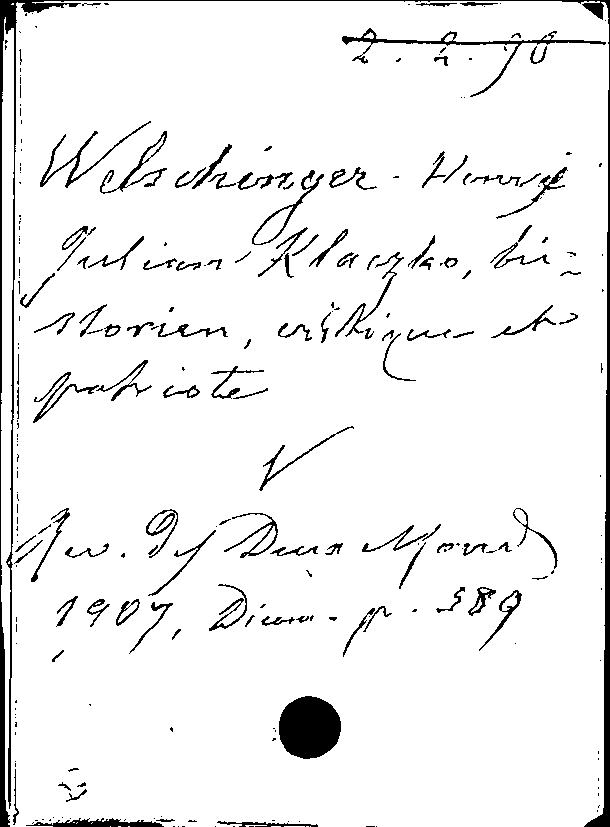 2. 2. 90
Welschinger - Henryk
Julian Klaczko, hi-
storien, critique et
patriote
V
Rev. des Deux Mond
1907, Decem. p. 389